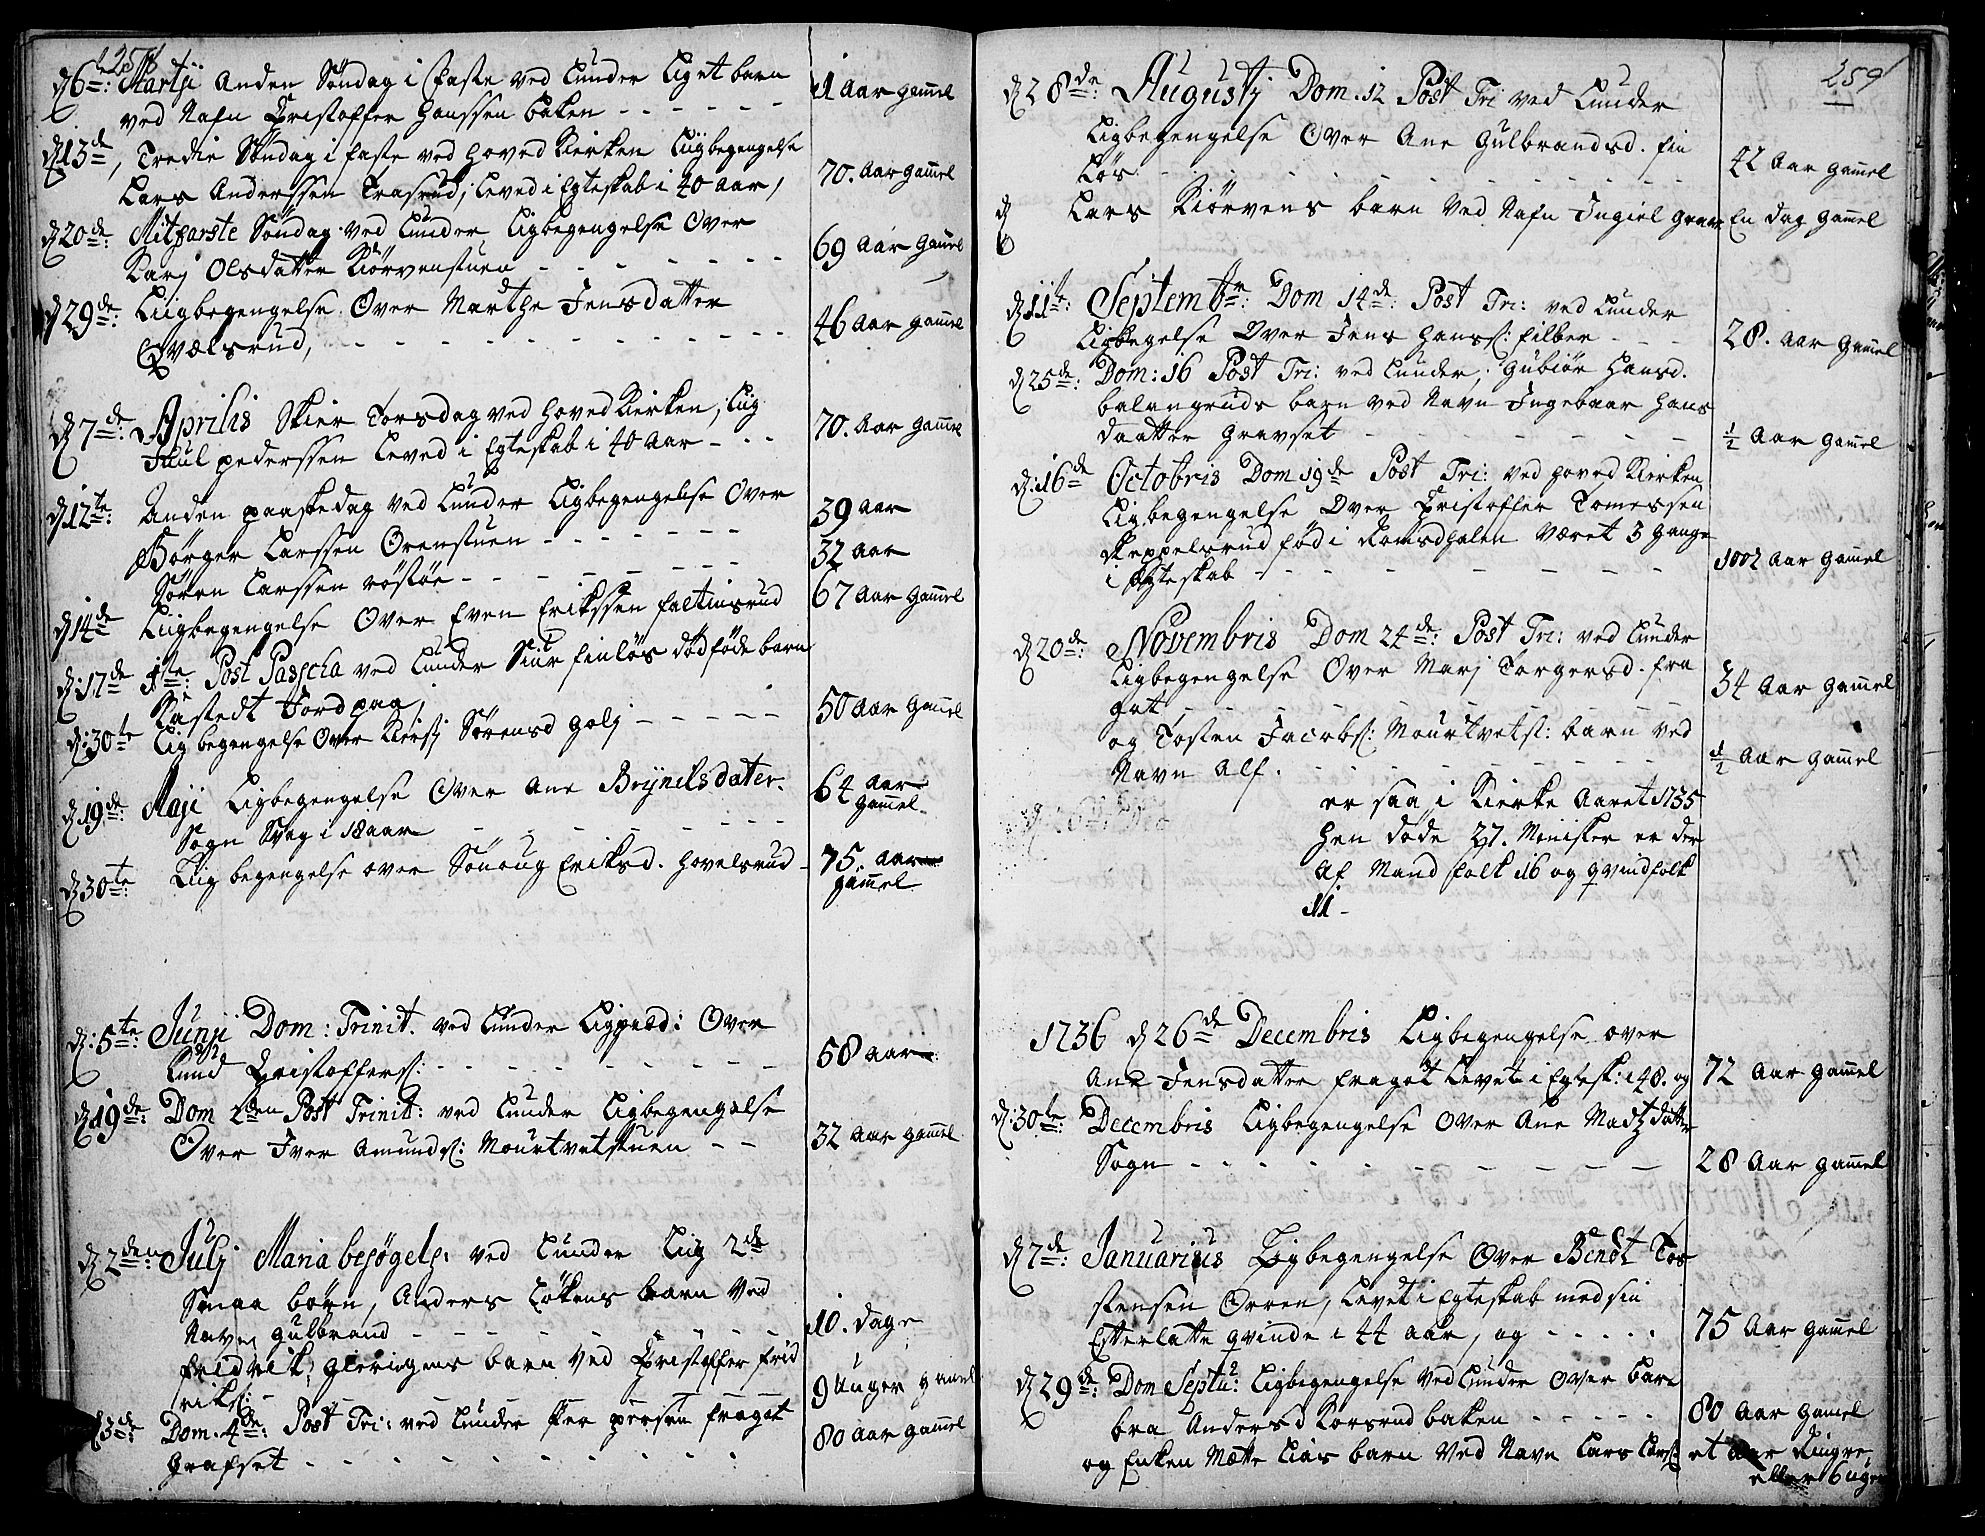 258
d 6te: Martji Anden Söndag i faste ved Lunder Liget barn
ved Nafn Christoffer Hanssen baken - - - - - - 1 Aar gam̃el
d 13de, Tredie Söndag i faste ved Hoved Kierken Liigbegengelse
Lars Anderssen Trasrud, Leved i Egteskab i 40 aar, 70. Aar gam̃el
d 20de: Mitfarste Söndag ved Lunder Ligbegengelse Over
Karj Olsdatter Kiörvenstuen - - - - - - - 69 Aar gam̃el
d 29de: Liigbegengelse Over Marthe Jensdatter
Qvælsrud, - - - - - - - - - - 46 Aar gam̃el
d 7de: Aprilis Skier Torsdag ved Hoved Kierken, Liig
Juul pederssen Leved i Egteskab i 40 Aar - - - 70. Aar gam̃el
d 12te: Anden paaskedag ved Lunder Ligbegengelse Over
Börger Larssen Orenstuen - - - - - - - 39 aar
Sören Larssen röstöe - - - - - - - 32 aar
d 14de Liigbegengelse Over Even Erikssen faltinsrud 67 Aar gam̃el
d:17de 1te: Post Passcha ved Lunder Siur finlös dödföde barn
Kastedt Jord paa,
d:30te Lig begengelse Over Kiersj Sörensd golj - - - - - 50 Aar gam̃el
d 19de: Maji Ligbegengelse Over Ane Brynilsdater. 64 aar gam̃el
Sogn Svag i 18 aar - - - - - - - -
d 30te: Liig begengelse over Sönoug Eriksd. Hovelsrud - 75. aar gam̃el
d:5te: Junji Dom: Trinit. ved Lunder Ligpræd: Over
Knud Christoffers: - - - - - - - - 58 aar
d 19de: Dom 2den Post Trinit: ved Lunder Ligbegengelse
Over Iver Amunds: Mourtvetstuen - - 32 Aar gam̃el
d 2den: Julj Maria besögels: ved Lunder Liig 2de
Smaa börn, Anders Lökens barn ved
Navn gulbrand - - - - - - - - 10. dage
fridrik gieringens barn ved Christoffer frid
riks: - 9 Uger gam̃el
3de: Dom. 4de: Post Tri: ved Lunder per persen fraget
grafset - - - - - - - - - 80 Aar gam̃el
259
d 28de: Augustj Dom. 12 Post Tri ved Lunder
Ligbegengelse Over Ane Gulbrandsd. fin
Lös. - - - - - - - - - - 42 Aar gam̃el
d Lars Kiörvens barn ved Nafn Ingiel grav En dag gam̃el
d 11te: Septembr: Dom 14de: Post Tri: ved Lunder
Ligbegelse Over Jens Hans: Eilber - - - 28. Aar gam̃el
d 25de: Dom: 16 Post Tri: ved Lunder, Gubiör Hansd.
balangruds barn ved Navn Ingebaar Hans
daatter gravset - - - - - - - ½ Aar gam̃el
d:16de Octobris Dom 19de Post Tri: ved Hoved Kierken
Ligbegengelse Over Christoffer Tomessen
skeppelsrud föd i Romsdhalen Været 3 gange
i Egteskab - - - - - - - - 1002 Aar gam̃el
d 20de: Novembris Dom 24de: Post Tri: ved Lunder
Ligbegengelse Over Marj Torgersd. fra
gat - - - - - - - - - 34 Aar gam̃el
og Tosten Jacobs: Mourtvets: barn ved
Navn Alf. - - - - - - - - ½ Aar gam̃el
er saa i Kierke Aaret 1735
hen döde 27. Menisker er der
Af Mand folk 16 og qvindfolk
11 -
1736 d 26de Decembris Ligbegengelse over
Ane Jensdatter fraget Levet i Egtesk: i 48. og 72 Aar gam̃el
d:30te: Decembris Ligbegengelse Over Ane Madzdatter
Sogn - - - - - - - - - 28 Aar gam̃el
d 7de: Januarius Ligbegengelse Over Bendt Tos
stensen Orren, Levet i Egteskab med sin
Efterlatte qvinde i 44 aar, og - - - - - 75 Aar gam̃el
d 29de: Dom Septu: Ligbegengelse ved Lunder Over bar
bra Andersd Korsrudbaken - - - - - 80 Aar gam̃el
og Enken Mette Lias barn ved Navn Lars Lars: et Aar
eller 6 uger